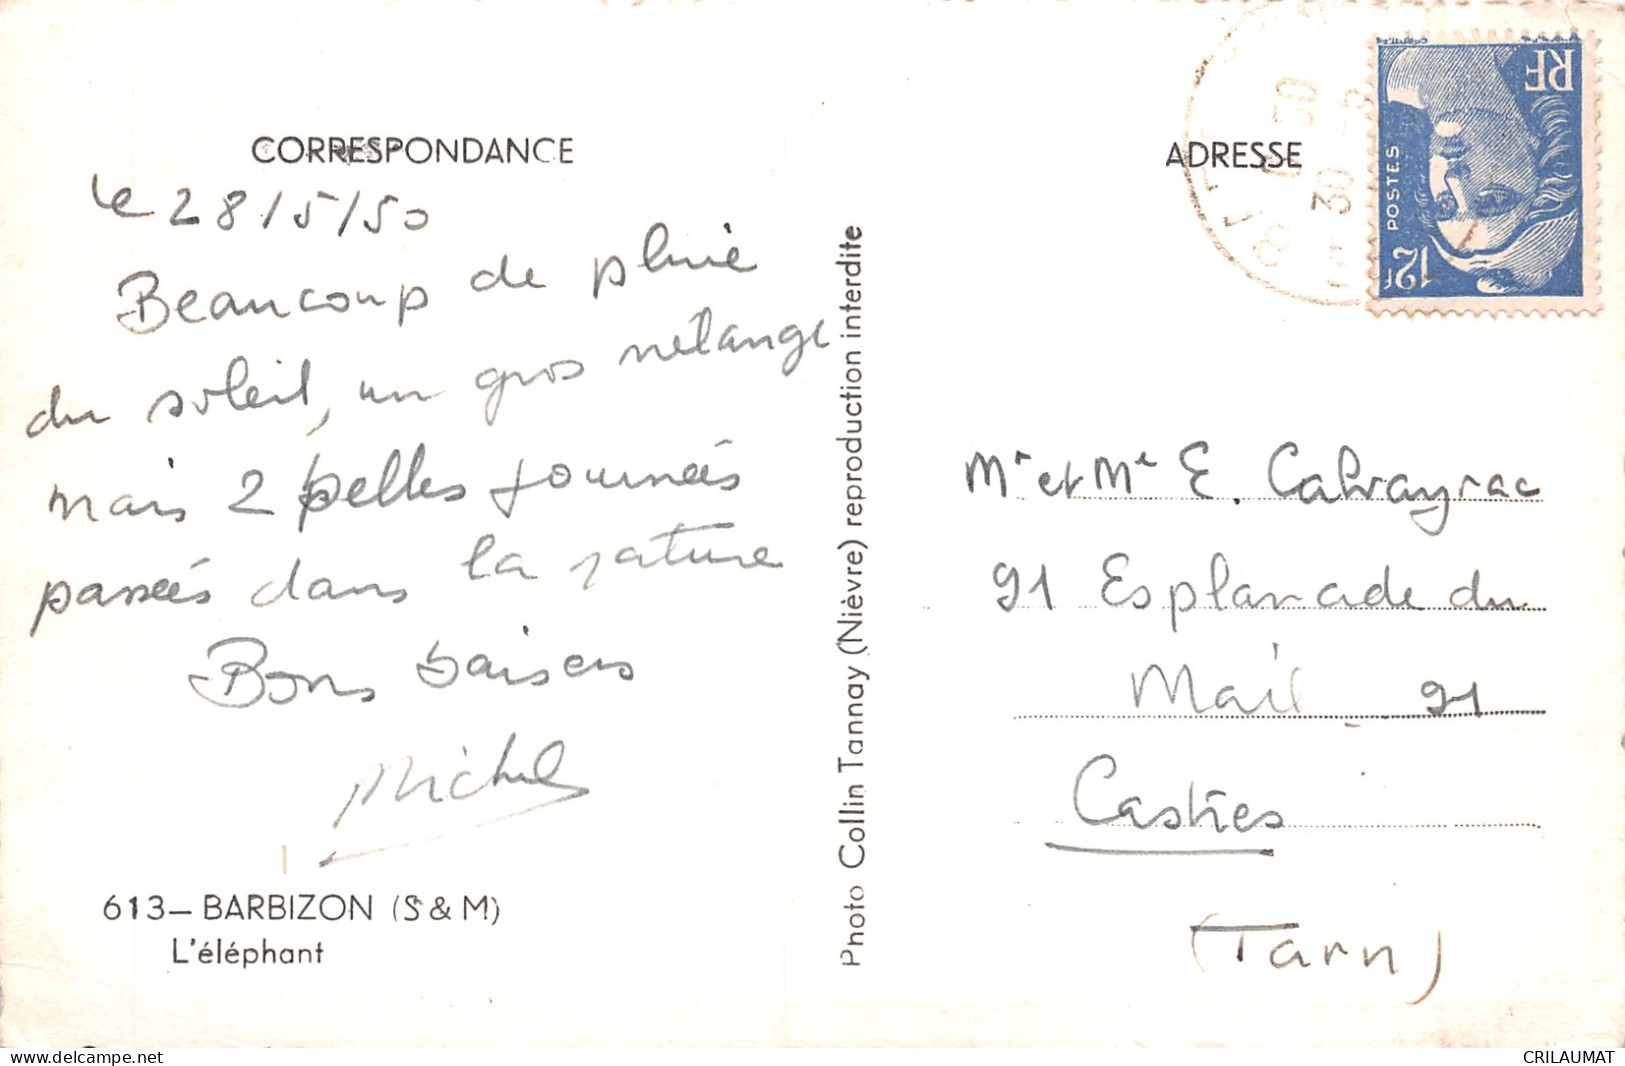 CORRESPONDANCE
le 28/5/50
Beaucoup de pluie
du soleil, un gros mélange
mais 2 belles journées
passées dans la nature
Bons baisers
Michel
613 — BARBIZON (S & M)
L'éléphant
Photo Collin Tannay (Nièvre) reproduction interdite
ADRESSE
RF
POSTES
12F
30 -5
50
Mr et Me E. Calvayrac
91 Esplanade du
Mail 91
Castres
(Tarn)
www.delcampe.net
CRILAUMAT